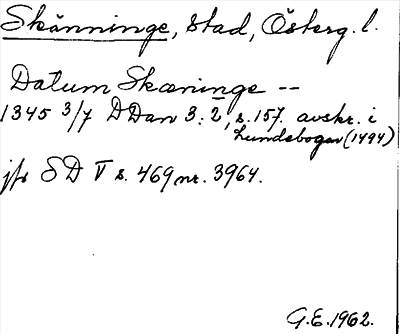 Skänninge, stad, Österg. l.
Datum Skæninge --
1345 3/7 DDan 3:2, s. 157. avskr. i
Lundebogen (1494)
jfr SD V s. 469 nr. 3964.
G.E. 1962.